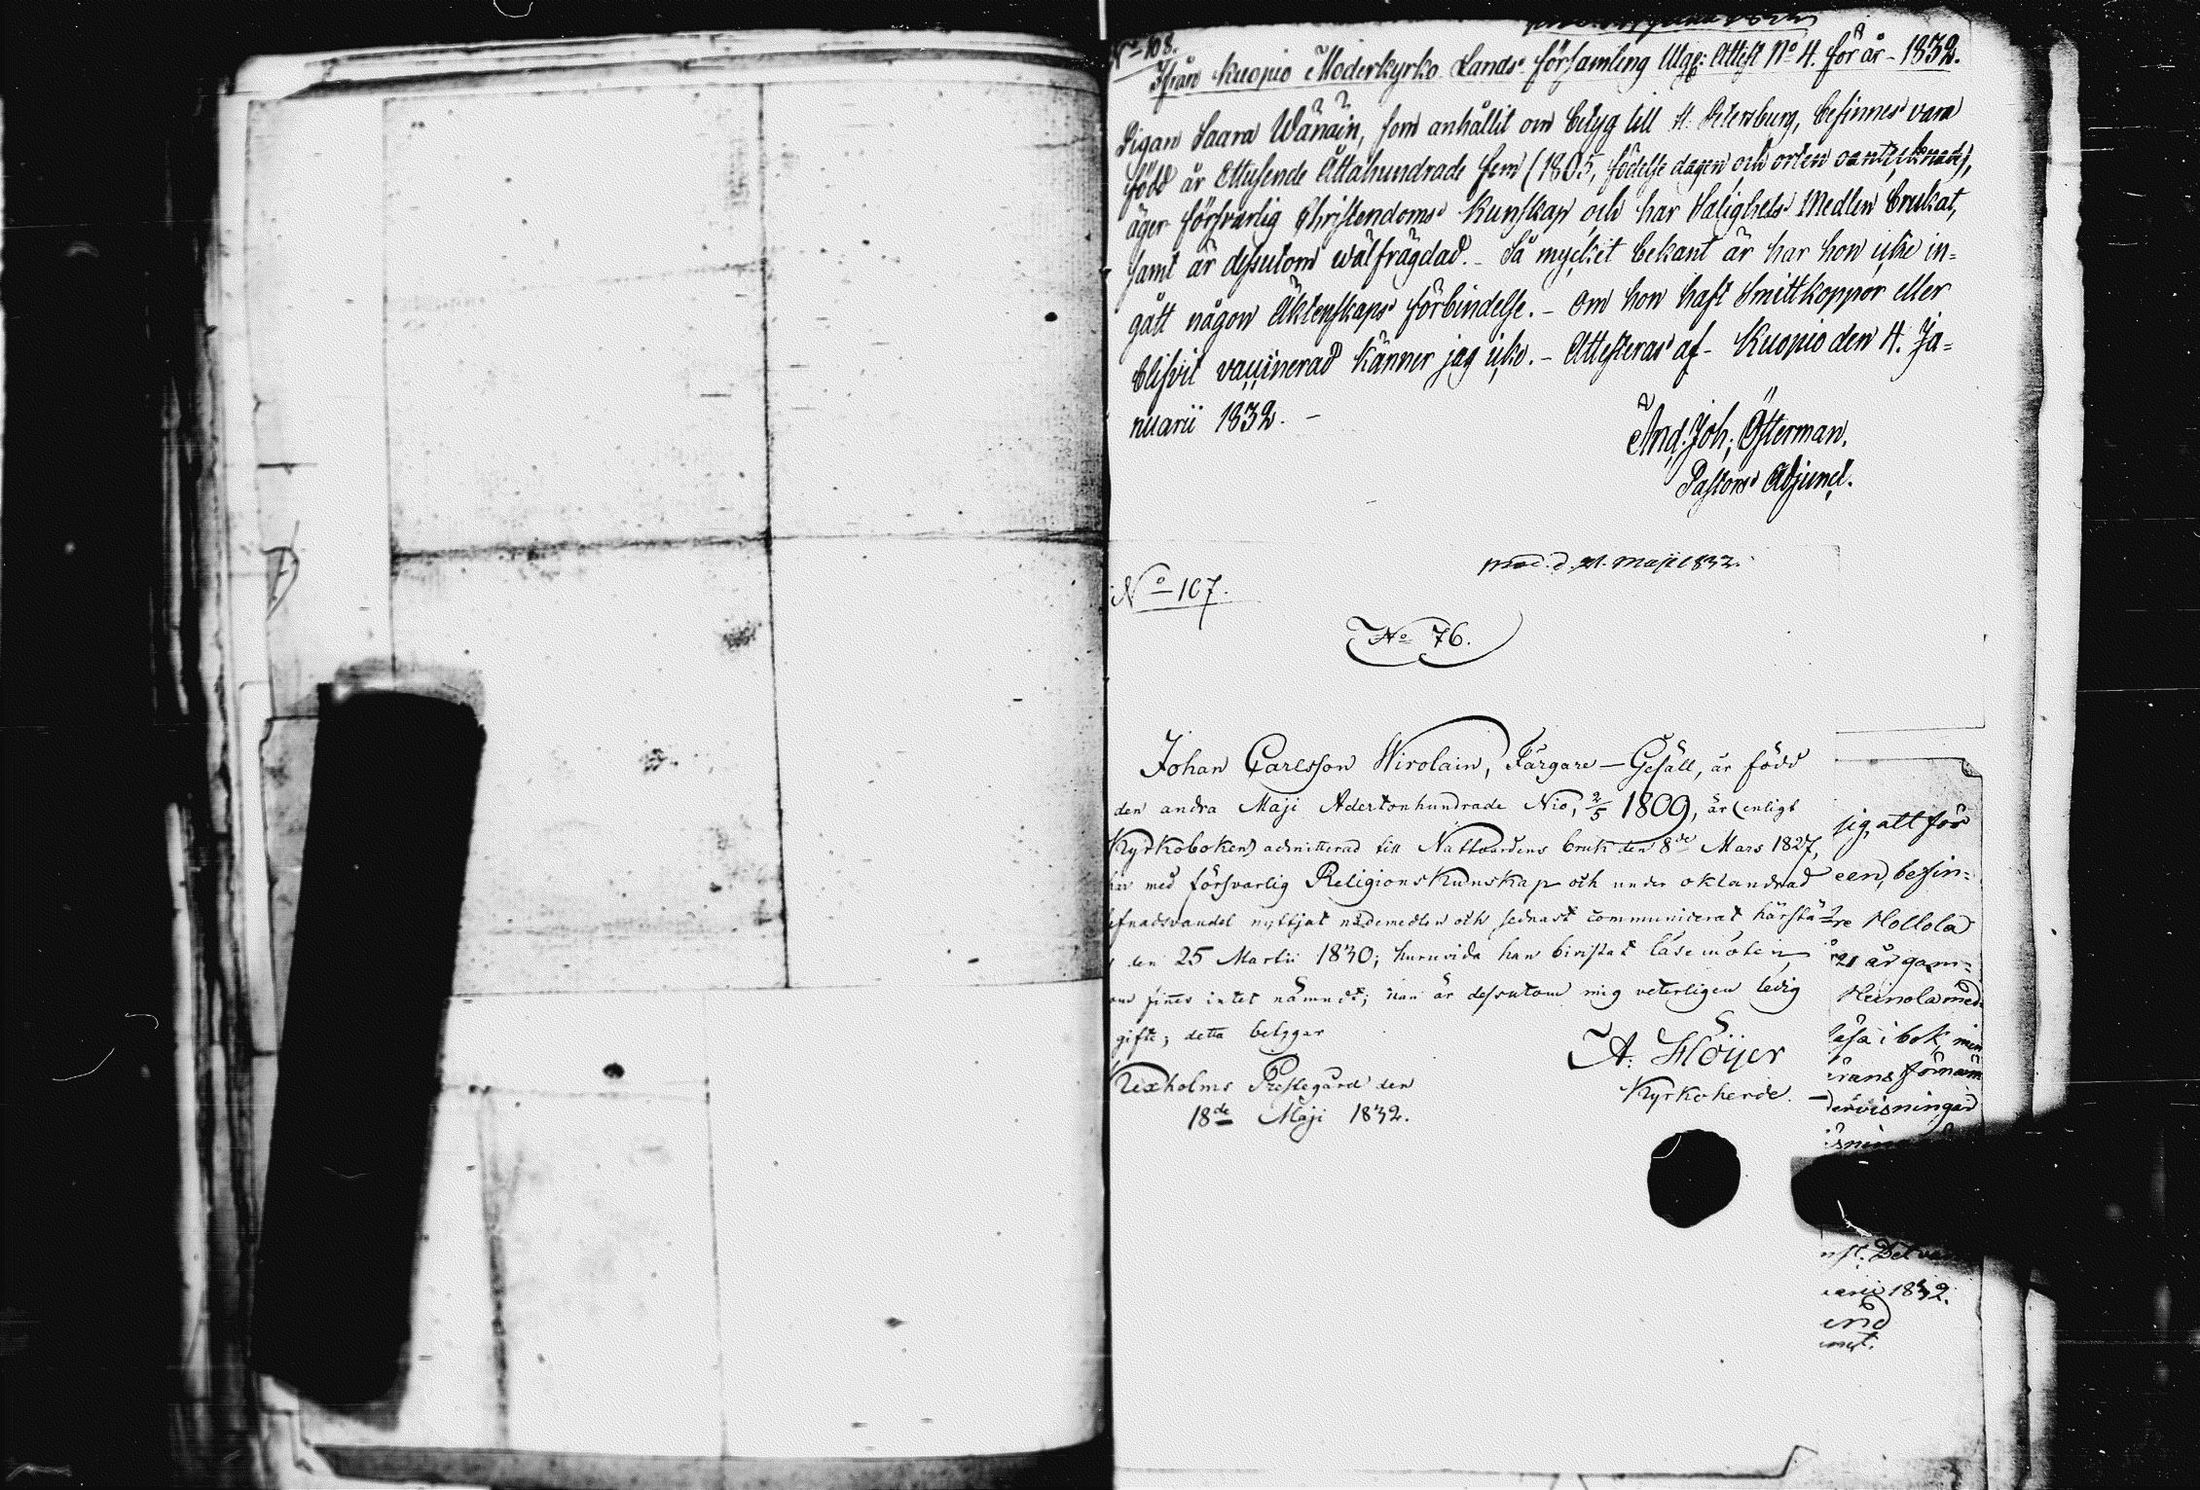 No 108.
Ifrån Kuopio Moderkyrko Lands församling Utgr: Attest No 4. för år 1832.
Pigan Saara Wänäin, som anhållit om betyg till St. Petersburg, befinnes vara
född år Ettusende Åttahundrade fem (1805, födelse dagen och orten oantecknad),
äger försvarlig Christendoms Kunskap och har Salighets Medlen brukat,
samt är dessutom wälfrägdad. - Så mycket bekant är har hon icke in=
gått någon Äktenskaps förbindelse. - Om hon haft Smittkoppor eller
blifvit vaccinerad känner jag icke. - Attesteras af - Kuopio den 4. Ja=
nuarii 1832. -
And. Joh; Österman,
Pastors Adjunct.
prod. d. 21. Maji 1832.
No 107.
No 76.
Johan Carlsson Wirolain, Färgare-Gesäll, är född
den andra Maji Adertonhundrade Nio, 2/5 1809, är (enligt
Kyrkoboken) admitterad till Nattvardens bruk den 8de Mars 1827,
har med försvarlig Religions Kunskap och under oklandrad
efnadsvandel nyttjat nådemedlen och sednast communicerat härstä=
den 25 Martii 1830; huruvida han bivistat läsemöten
fines intet nämndt; han är dessutom mig veterligen ledig
gifte; detta betygar
Kexholms Prestegård den
18de Maji 1832.
A. Höijer
Kyrkoherde.
sig att för
een, befin=
re Hollola
21 år gam=
Heinola med
läsa i bok, min
erans förnäm
dervisningar
nst. Det va
arii 1832.